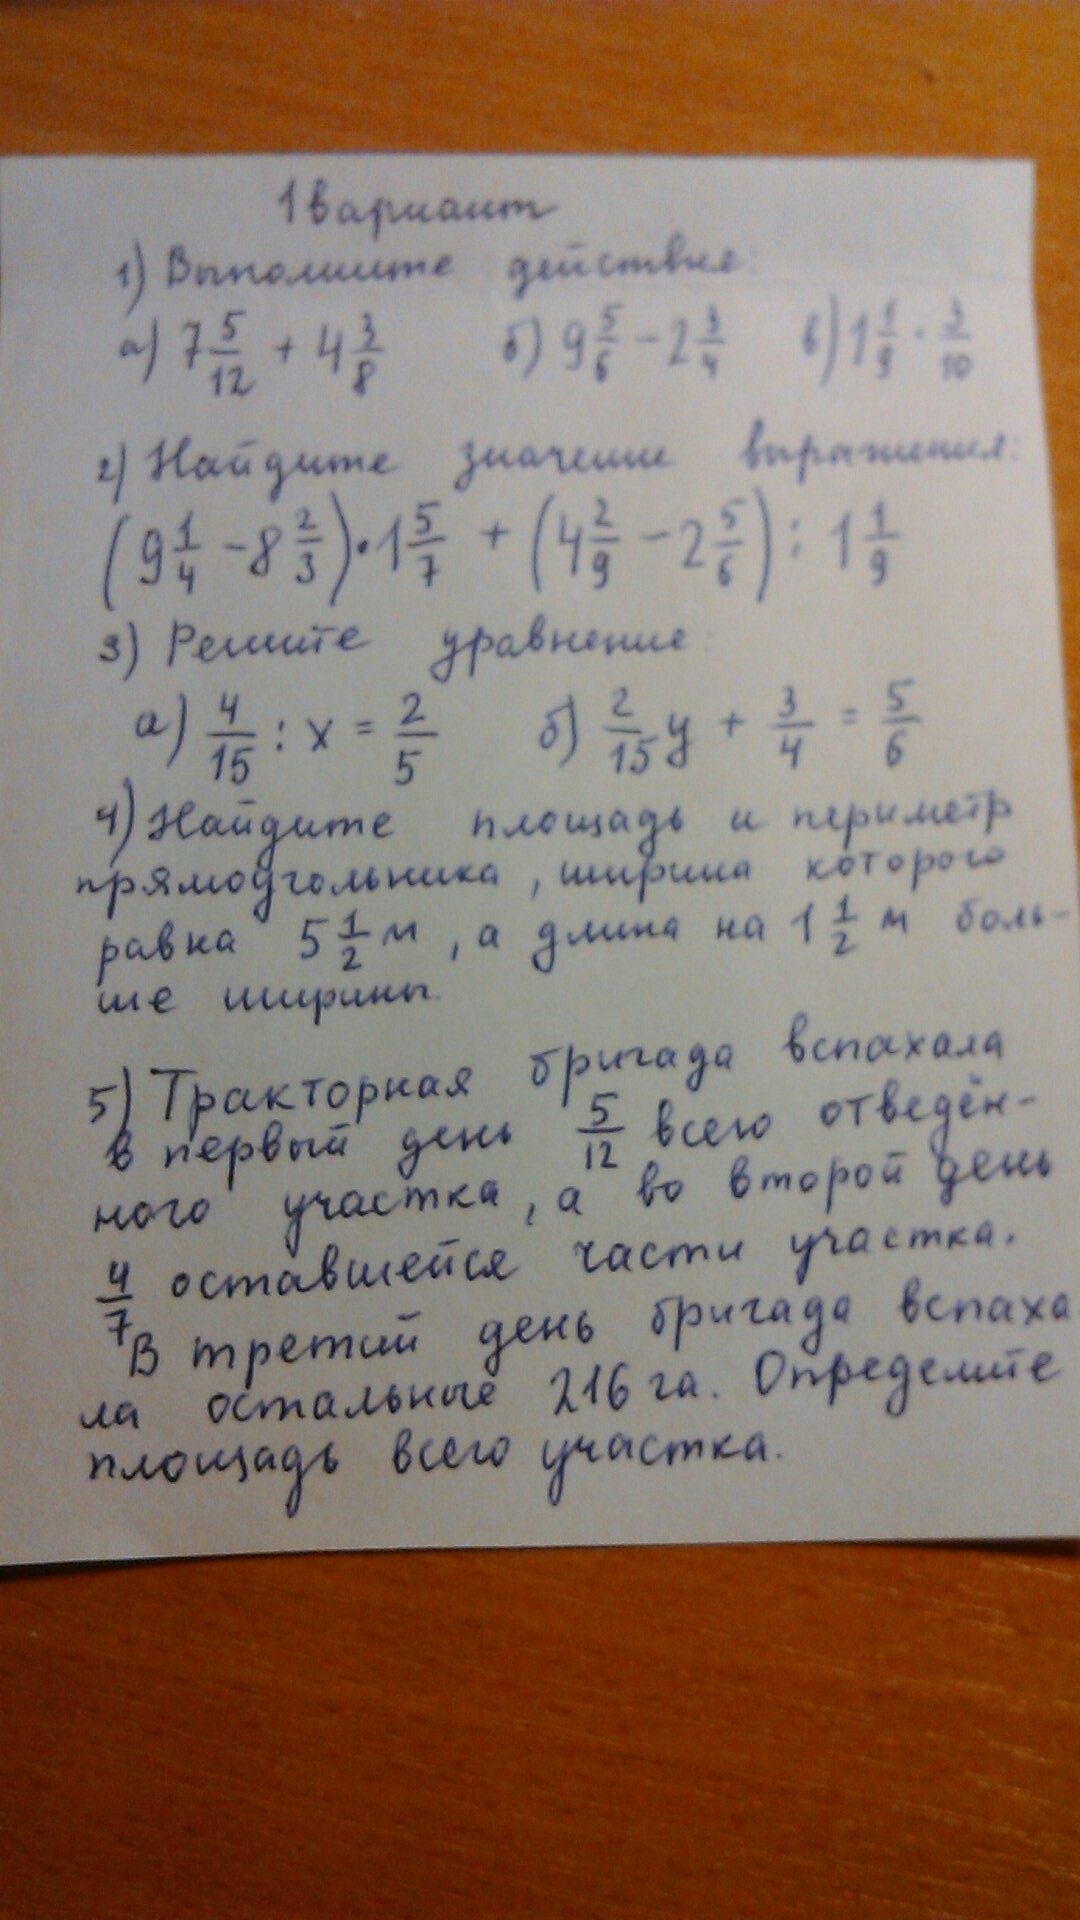 1 вариант
1) Выполните действия:
а) 7 5/12 + 4 3/8 б) 9 5/6 - 2 3/4 в) 1 1/9 · 3/10
2) Найдите значение выражения:
(9 1/4 - 8 2/3) · 1 5/7 + (4 2/9 - 2 5/6) : 1 1/9
3) Решите уравнение:
а) 4/15 : x = 2/5 б) 2/15 y + 3/4 = 5/6
4) Найдите площадь и периметр
прямоугольника, ширина которого
равна 5 1/2 м, а длина на 1 1/2 м боль-
ше ширины.
5) Тракторная бригада вспахала
в первый день 5/12 всего отведён-
ного участка, а во второй день
4/7 оставшейся части участка.
В третий день бригада вспаха
ла остальные 216 га. Определите
площадь всего участка.